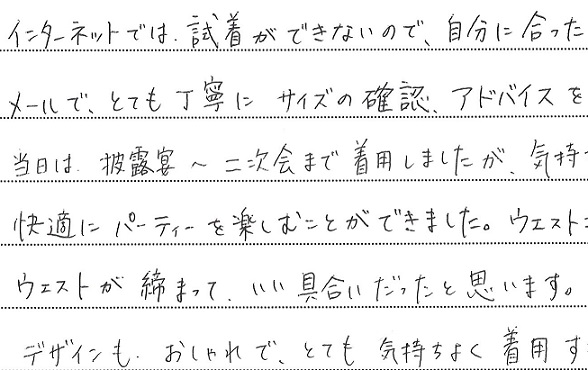 インターネットでは、試着ができないので、自分に合った
メールで、とても丁寧に サイズの確認、アドバイスを
当日は、披露宴～二次会まで着用しましたが、気持
快適にパーティーを楽しむことができました。ウェスト
ウェストが締まって、いい具合いだったと思います。
デザインも、おしゃれで、とても気持ちよく着用す